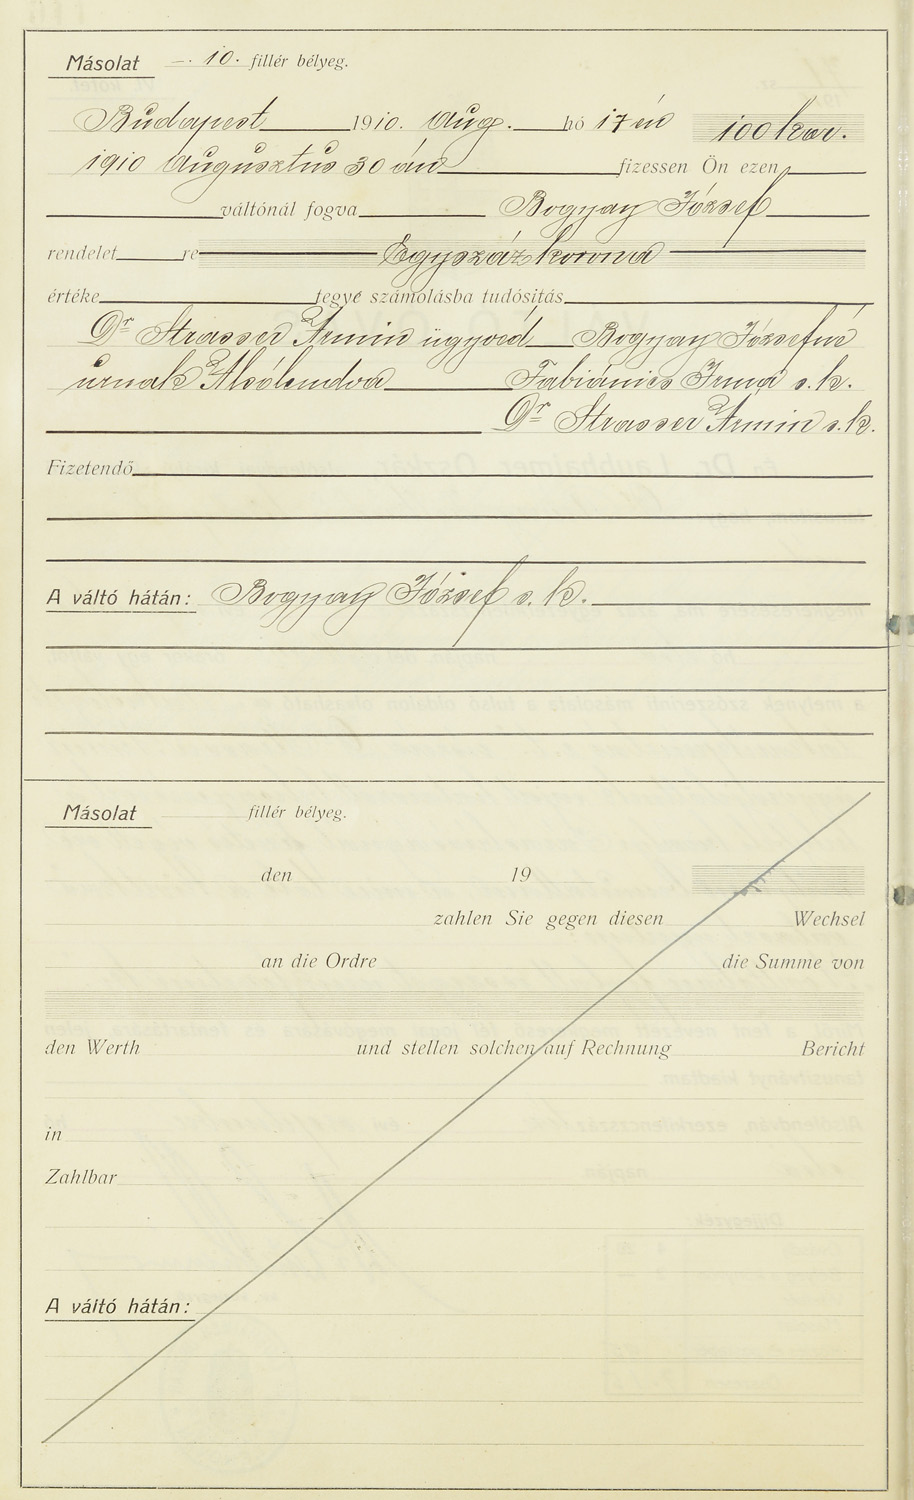 Másolat —. 10. fillér bélyeg.
Budapest 1910. Aug. hó 17 én 100 kor.
1910 Augusztus 30 án fizessen Ön ezen
váltónál fogva Bogyay József
rendelet re Egyszáz korona
értéke tegye számolásba tudósitás
Dr Strasser Ármin ügyvéd Bogyay Józsefné
úrnak Alsólendva Fabiánics Irma s. k.
Dr Strasser Ármin s. k.
Fizetendő
A váltó hátán: Bogyay József s. k.
Másolat fillér bélyeg.
den 19
zahlen Sie gegen diesen Wechsel
an die Ordre die Summe von
den Werth und stellen solchen auf Rechnung Bericht
in
Zahlbar
A váltó hátán: